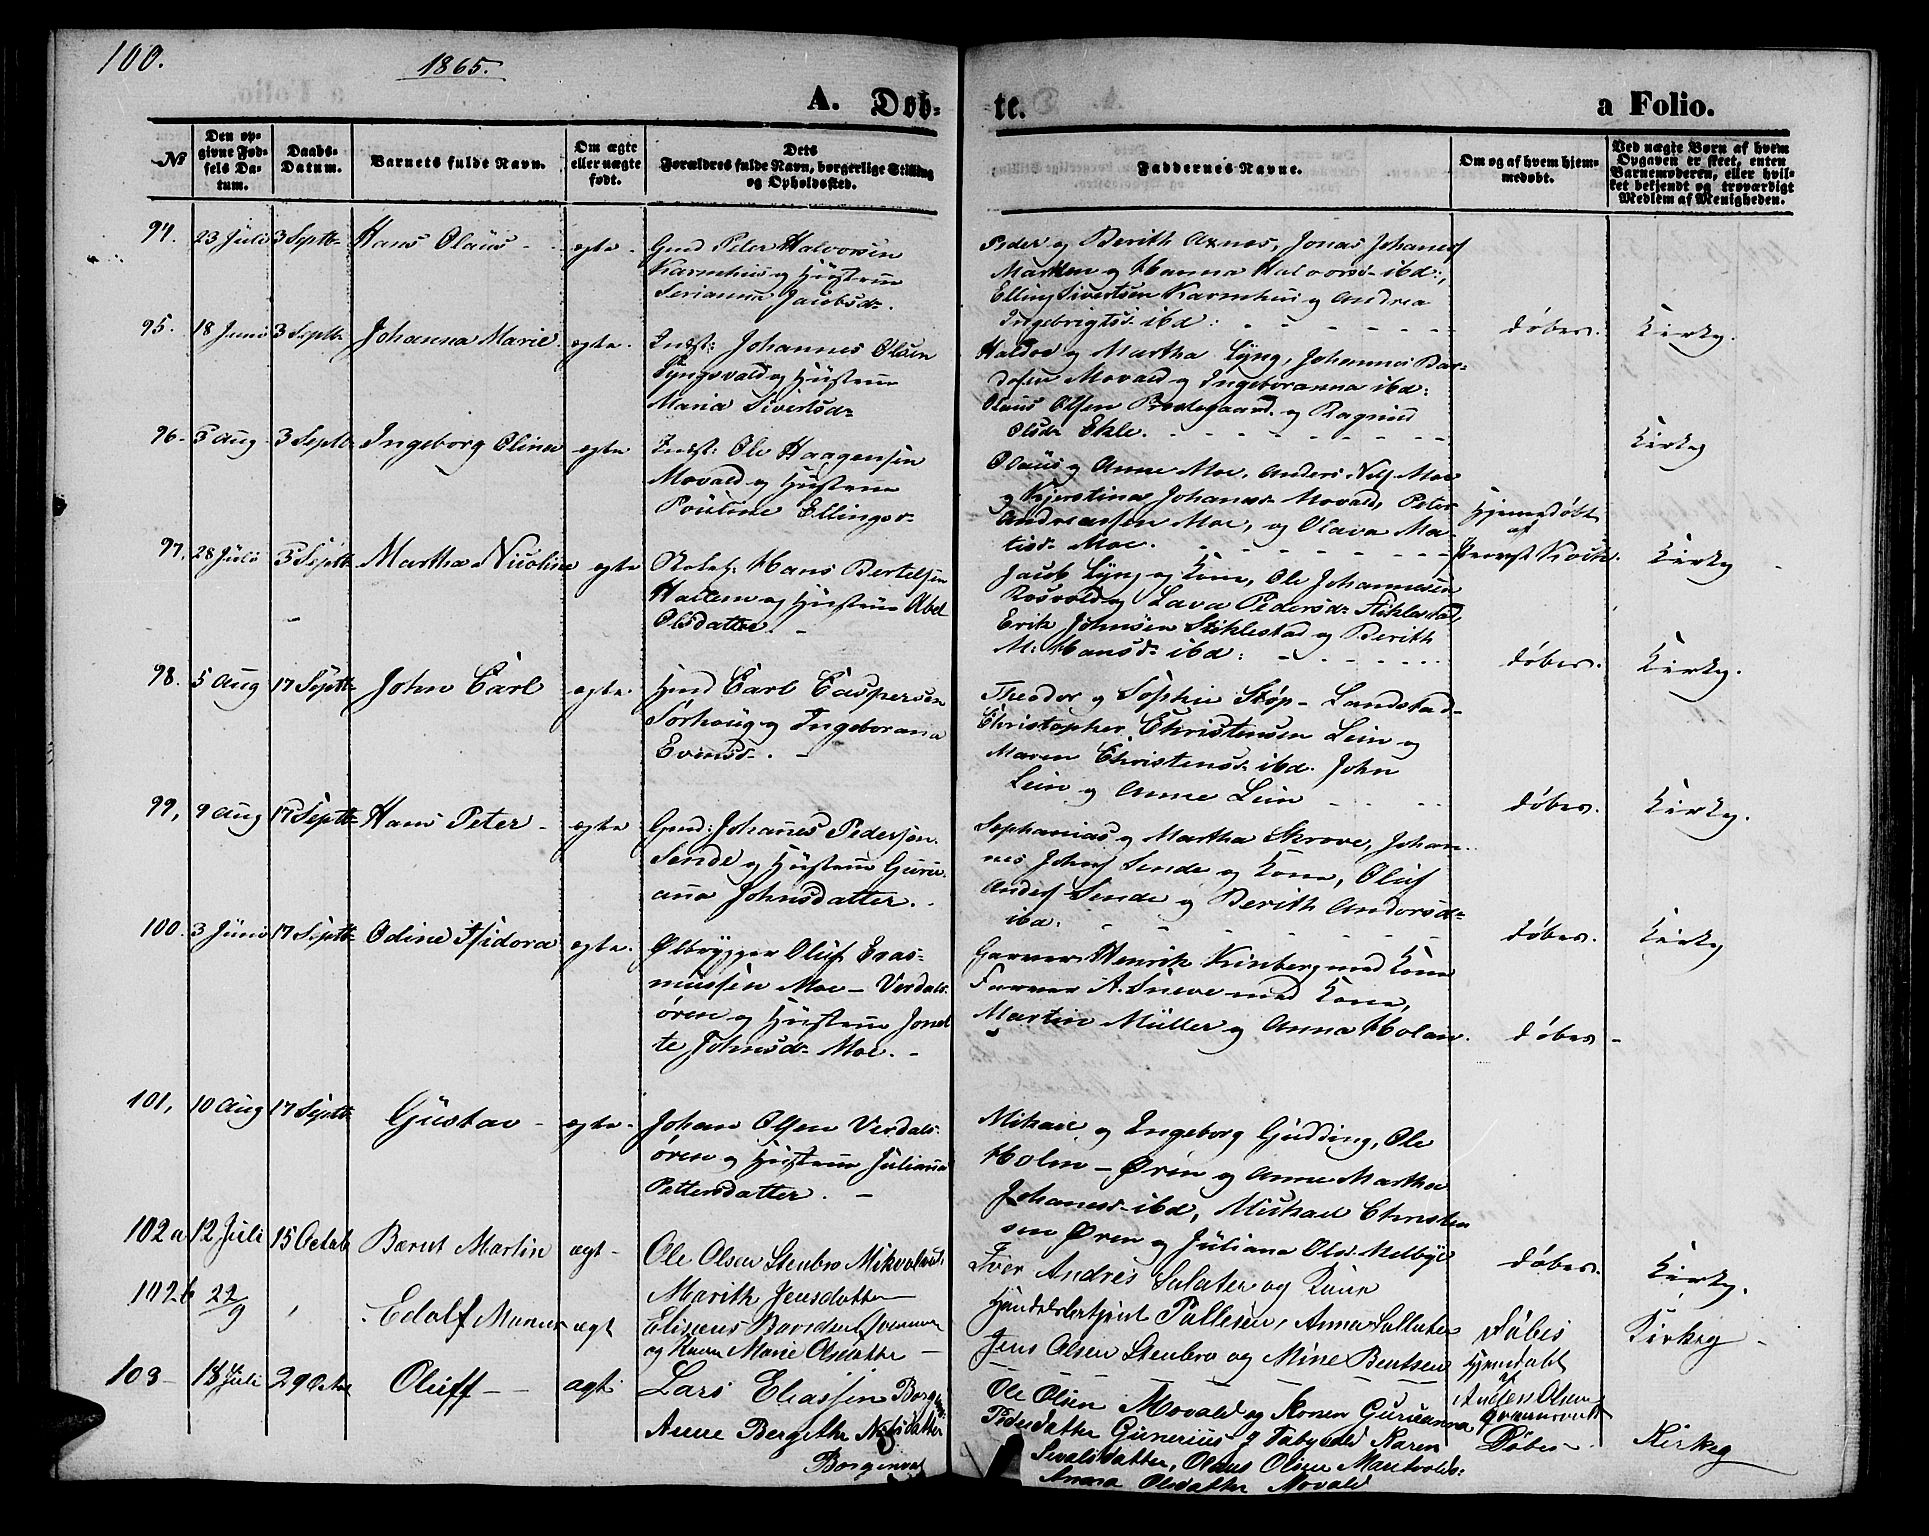 100.
1865.
A. Døb-
te.
a Folio.
No
Den op-
givne Fød-
sels Da-
tum.
Daabs-
Datum.
Barnets fulde Navn.
Om ægte
eller uægte
født.
Dets
Forældres fulde Navn, borgerlige Stilling
og Opholdssted.
Faddernes Navne.
Om og af hvem hjem-
medøbt.
Ved uægte Børn af hvem
Opgaven er skeet, enten
Barnemoderen, eller hvil-
ket bekjendt og troværdigt
Medlem af Menigheden.
94. 23 Juli 3 Septb Hans Olaus - - egte -
Gmd Peter Halvorsen
Karmhus og Hustrue
Serianna Jacobsd.
Peder og Berith Axnes, Jonas Johanes
Marken og Hanna Halvorsd ibd:,
Elling Sivertsen Karmhus og Andrea
Ingebrigtsd ibd: døbes. Kirke.
95. 18 Juni 3 Septb Johanna Marie egte.
Indst: Johannes Olsen
Lyngsvald og Hustrue
Maria Sivertsd
Haldor og Martha Lyng, Johannes Bar-
dosen Movald og Ingeboranna ibd:
Olaus Olsen Prestegaard og Ragnild
Olsd Ekle. Kirke
96. 5 Aug 3 Septb Ingeborg Oline egte
Indst: Ole Haagensen
Movald og Hustrue
Pouline Ellingsd
Olaus og Anne Moe, Anders Nils Moe
og Kjerstina Johanesd Movald, Peter
Andreassen Moe, og Olava Ma-
tisd Moe.
Hjemedøbt
af
Provst Kock. Kirke
97. 28 Juli 3 Septb Martha Nicoline egte
Hans Bertelsen
Hallem og Hustrue Abel
Olsdatter. -
Jacob Lyng og Kone, Ole Johannesen
Rosvold og Lava Pedersd Stiklestad
Erik Johnsen Stiklestad og Berith
M. Hansd ibd: døbes. Kirke.
98. 5 Aug 17 Septb John Carl egte
Carl Caspersen
Sørhaug og Ingeborana
Evensd. -
Theodor og Sophie Støp - Landstad
Christopher Christensen Lein og
Maren Christensd ibd. John
Lein og Anne Lein døbes. Kirke.
99, 9 Aug 17 Septb Hans Peter - egte
Gmd: Johanes Pedersen
Sende og Hustrue Guru-
ana Johnsdatter.
Sephanias og Martha Skrove, Johan-
nes Johns Sende og Kone, Oluf
Anders Sende og Berith Andersd
ibd. døbes. Kirke
100. 3 Juni 17 Septb Odine Isidora egte.
Ølbrygger Oluf Eras-
mussen Moe - Verdals-
øren og Hustrue Jonet-
te Johnsd Moe. -
Garver Henrik Kinberg med Kone
Farver A. Sneve med Kone,
Martin Müller og Anna Holan. døbes -
101, 10 Aug 17 Septb Gustav - egte -
Johan Olsen Verdals-
øren og Hustrue Juliana
Pettersdatter. -
Mikael og Ingeborg Gudding, Ole
Holm - Øren og Anne Martha
Johanesd ibd, Mickael Christen
sen Øren og Juliana Olsd Melbye døbes. Kirke.
102a 12 Juli 15 Octob Bernt Martin ægt -
Ole Olsen Stenbro
Marith Jensdatter
Iver Andres Salater og Kone
102b 22/9 Edolf egt
og Kone Marie Olsdatter -
Pallesen, Anna Sallater
Jens Olsen Stenbro og Mine Bentsen
Døbes Kirkeg -
103 - 18 Juli 29 Octo Oluff - - egt
Lars Eliassen
Anne Bergithe Nilsdatter
Ole Olsen Movald og Konen Guruanna
Pedersdatter Gunerius Karen
Sevaldsdatter, Olaus Olsen
Anna Olsdatter Movald
Hjemdøbt
af
Anders Olsen
Døbes - Kirkeg